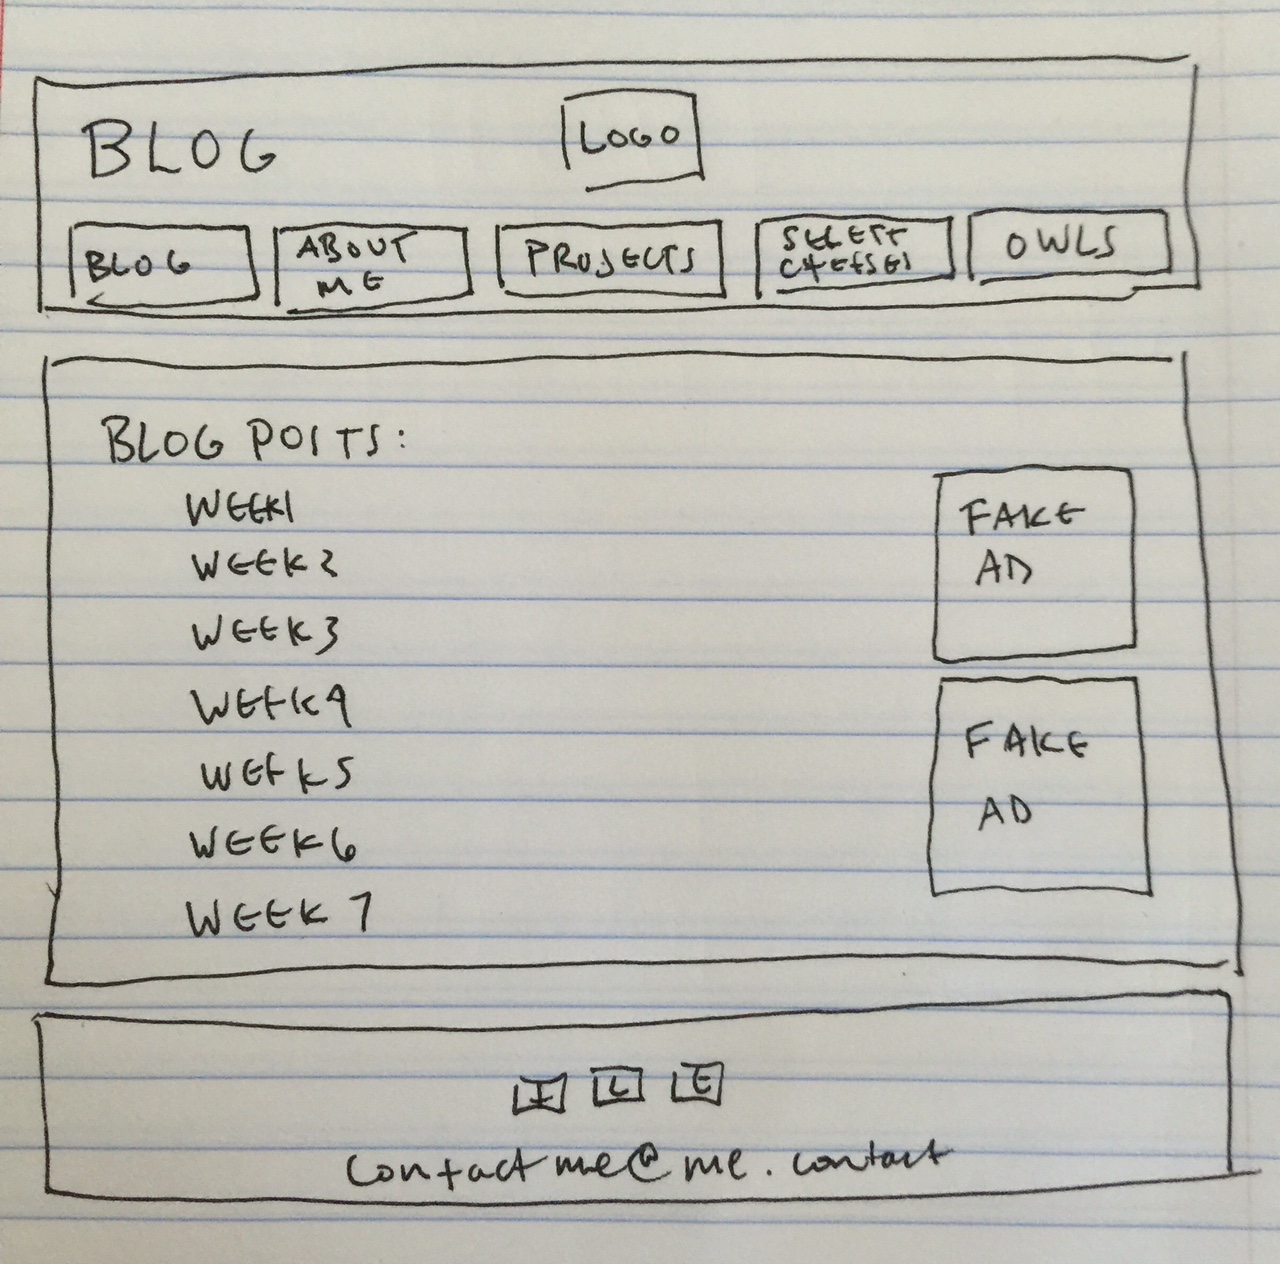 BLOG
LOGO
BLOG
ABOUT
ME
PROJECTS
SELECT
CHEESES
OWLS
BLOG POSTS:
WEEK1
WEEK2
WEEK3
WEEK4
WEEK5
WEEK6
WEEK 7
FAKE
AD
FAKE
AD
I L E
contactme@me.contact